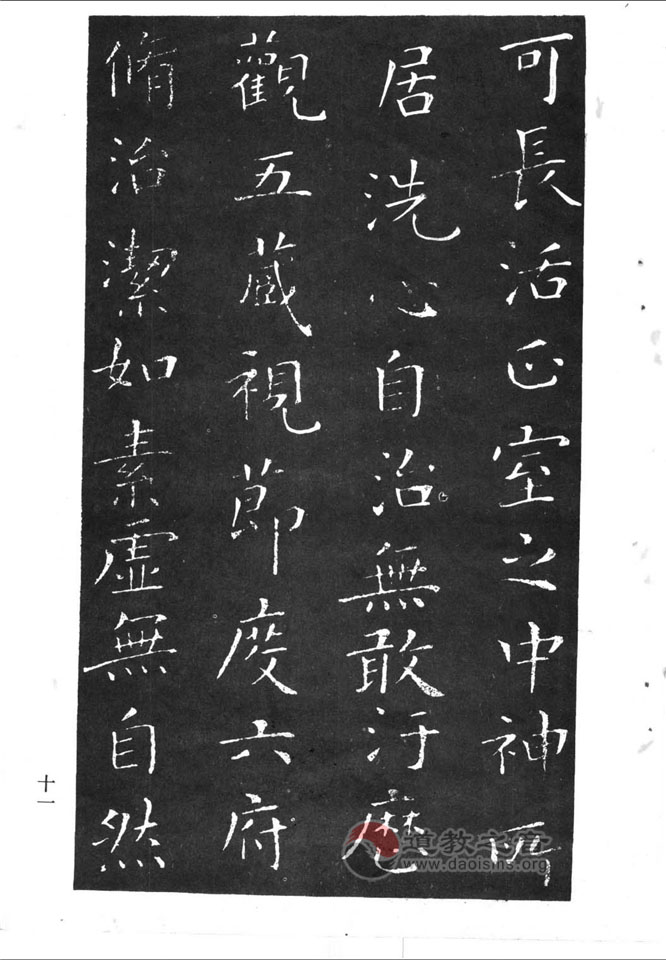 可長活正室之中神所
居洗心自治無敢汙歷
觀五藏視節度六府
脩治潔如素虛無自然
十一
道教之音
www.daoisms.org